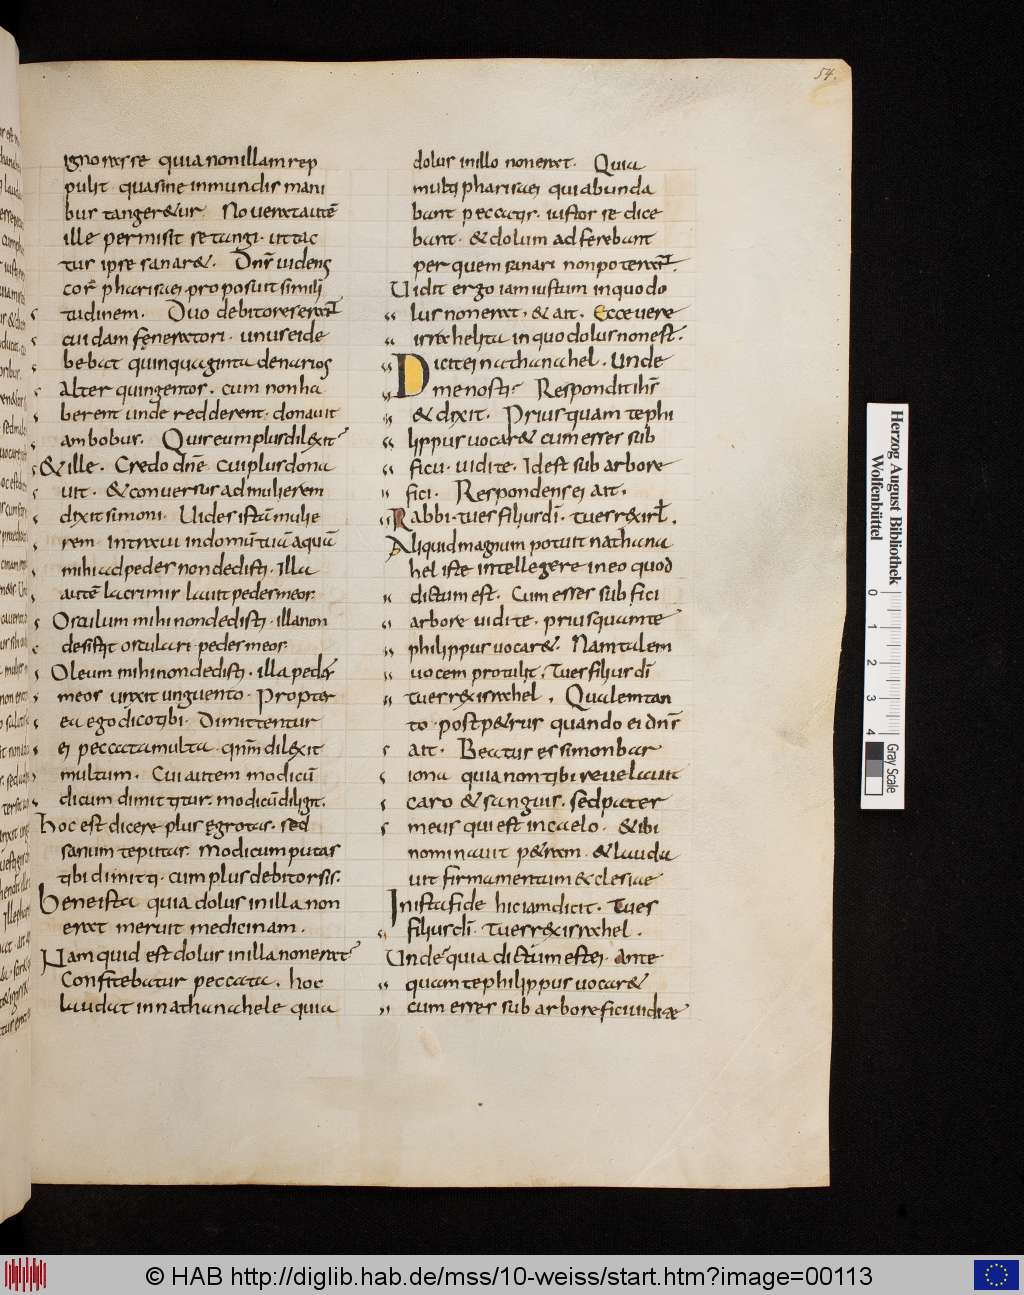 54.
ignorasse quia non illam rep
pulit · quasi ne inmundis mani
bus tanger&ur · Noverat autē
ille permisit se tangi · ut tac
tus ipse sanar& · Dn̄s videns
cor phariseei proposuit simili
tudinem · Duo debitores erant
cuidam feneratori · unus ei de
bebat quinquaginta denarios
Alter quingentos · cum non ha
berent unde redderent · donavit
ambobus · Quis eum plus dilexit
& ille · Credo dn̄e cui plus dona
vit · & conversus ad mulierem
dixit simoni · Vides istā mulie
rem · Intravi in domū tuā aquā
mihi ad pedes non dedisti · Illa
autē lacrimis lavit pedes meos·
Osculum mihi non dedisti · illa non
desistit osculari pedes meos·
Oleum mihi non dedisti · illa pedes
meos unxit unguento · Propter
ea ego dico tibi · Dimittentur
ei peccata multa · qnm̄ dilexit
multum · Cui autem modicū
dicum dimittitur · modicū diligit·
hoc est dicere plus egrotas · sed
sanum te putas · Modicum putas
tibi dimitti · cum plus debitor sis·
Bene ista quia dolus in illa non
erat meruit medicinam ·
Nam quid est dolus in illa non erat
Confitebatur peccata · hoc
laudat in nathanahele quia
dolus in illo non erat · Quia
multi pharisaei qui abunda
bant peccatis · iustos se dice
bant · & dolum adferebant
per quem sanari non poterant·
Vidit ergo iam iustum in quo do
lus non erat · & ait · Ecce vere
israhelita in quo dolus non est·
Dicit ei nathanahel · Unde
me nosti? Respondit ihs̄
& dixit · Priusquam te phi
lippus vocar& cum esses sub
ficu · vidi te · Id est sub arbore
fici · Respondens ei ait·
Rabbi · tu es filius dī · tu es rex isrl̄ ·
Aliquid magnum potuit nathana
hel iste intellegere in eo quod
dictum est · Cum esses sub fici
arbore vidi te · priusquam te
philippus vocar& · Nam talem
vocem protulit · Tu es filius dī
tu es rex israhel · Qualem tan
to post p&rus quando ei dn̄s
ait · Beatus es simon bar
iona quia non tibi revelavit
caro & sanguis · sed pater
meus qui est in caelo · & ibi
nominavit p&ram · & lauda
vit firmamentum ecclesiae
In ista fide hic iam dicit · Tu es
filius dī · tu es rex israhel ·
Unde? quia dictum est ei · Ante
quam te philippus vocar&
cum esses sub arbore fici vidi te
Herzog August Bibliothek
Wolfenbüttel
0 1 2 3 4
Gray Scale
© HAB http://diglib.hab.de/mss/10-weiss/start.htm?image=00113